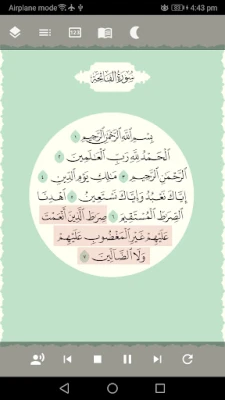 Airplane mode 4:43 pm
سُورَةُ الفَاتِحَةِ
بِسۡمِ ٱللَّهِ ٱلرَّحۡمَٰنِ ٱلرَّحِيمِ ١
ٱلۡحَمۡدُ لِلَّهِ رَبِّ ٱلۡعَٰلَمِينَ ٢
ٱلرَّحۡمَٰنِ ٱلرَّحِيمِ ٣ مَٰلِكِ يَوۡمِ ٱلدِّينِ ٤
إِيَّاكَ نَعۡبُدُ وَإِيَّاكَ نَسۡتَعِينُ ٥ ٱهۡدِنَا
ٱلصِّرَٰطَ ٱلۡمُسۡتَقِيمَ ٦ صِرَٰطَ ٱلَّذِينَ أَنۡعَمۡتَ
عَلَيۡهِمۡ غَيۡرِ ٱلۡمَغۡضُوبِ عَلَيۡهِمۡ
وَلَا ٱلضَّآلِّينَ ٧